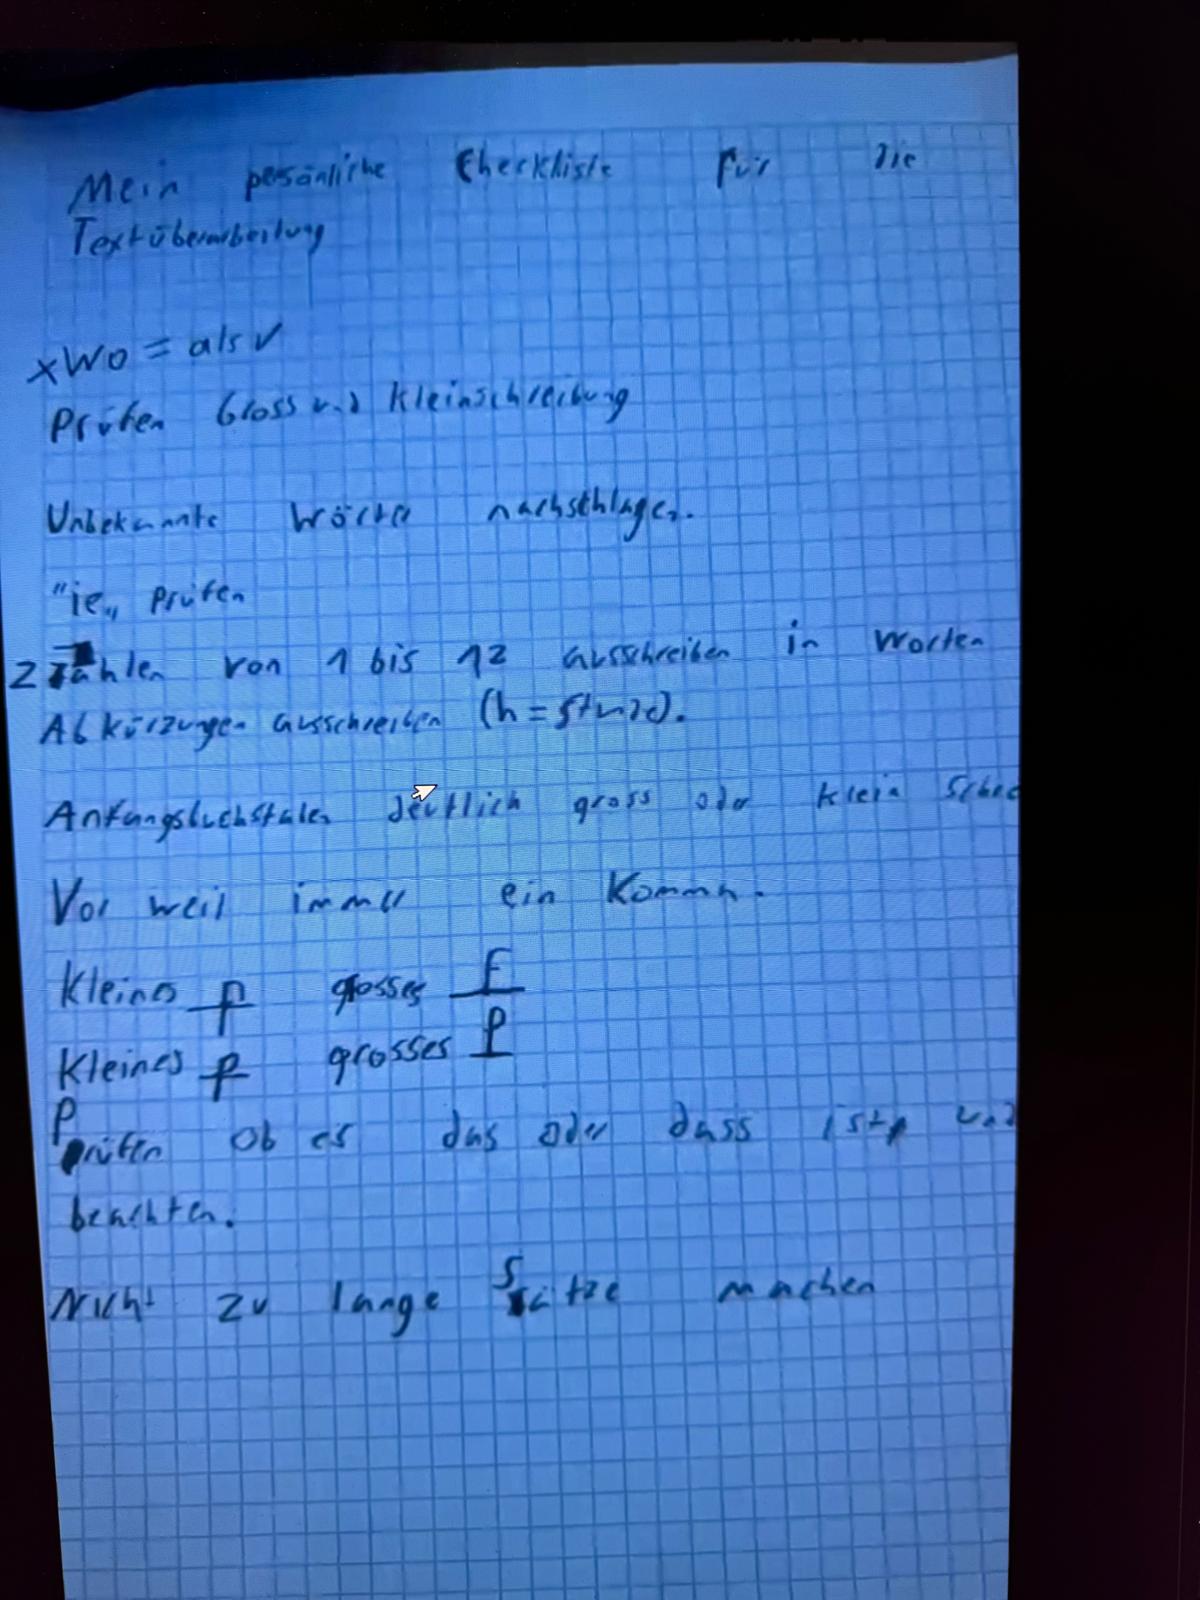 Mein persönliche Checkliste für die
Textüberarbeitung
x Wo = als ✓
Prüfen Gross und Kleinschreibung
Unbekannte Wörter nachschlagen.
"ie„ prüfen
Zahlen von 1 bis 12 ausschreiben in Worten
Abkürzungen ausschreiben (h = Stunde).
Anfangsbuchstaben deutlich gross oder klein
Vor weil immer ein Komma.
Kleines f grosses F
Kleines p grosses P
Prüfen ob es das oder dass ist und
beachten.
Nicht zu lange Sätze machen